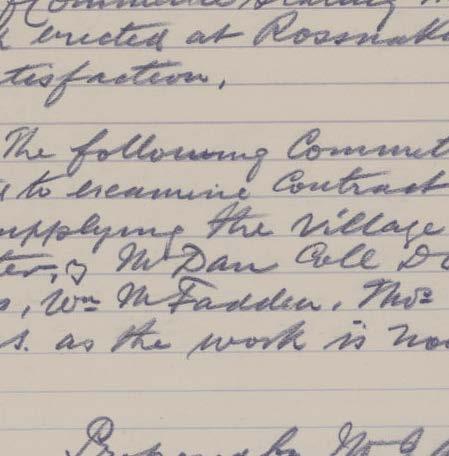 of Committee stating
k erected at Rossnak
tisfaction,
The following Commit
d to examine Contract
upplying the Village
ter, Mr Dan Coll D
s, Wm McFadden, Thos
s. as the work is now
Proposed by